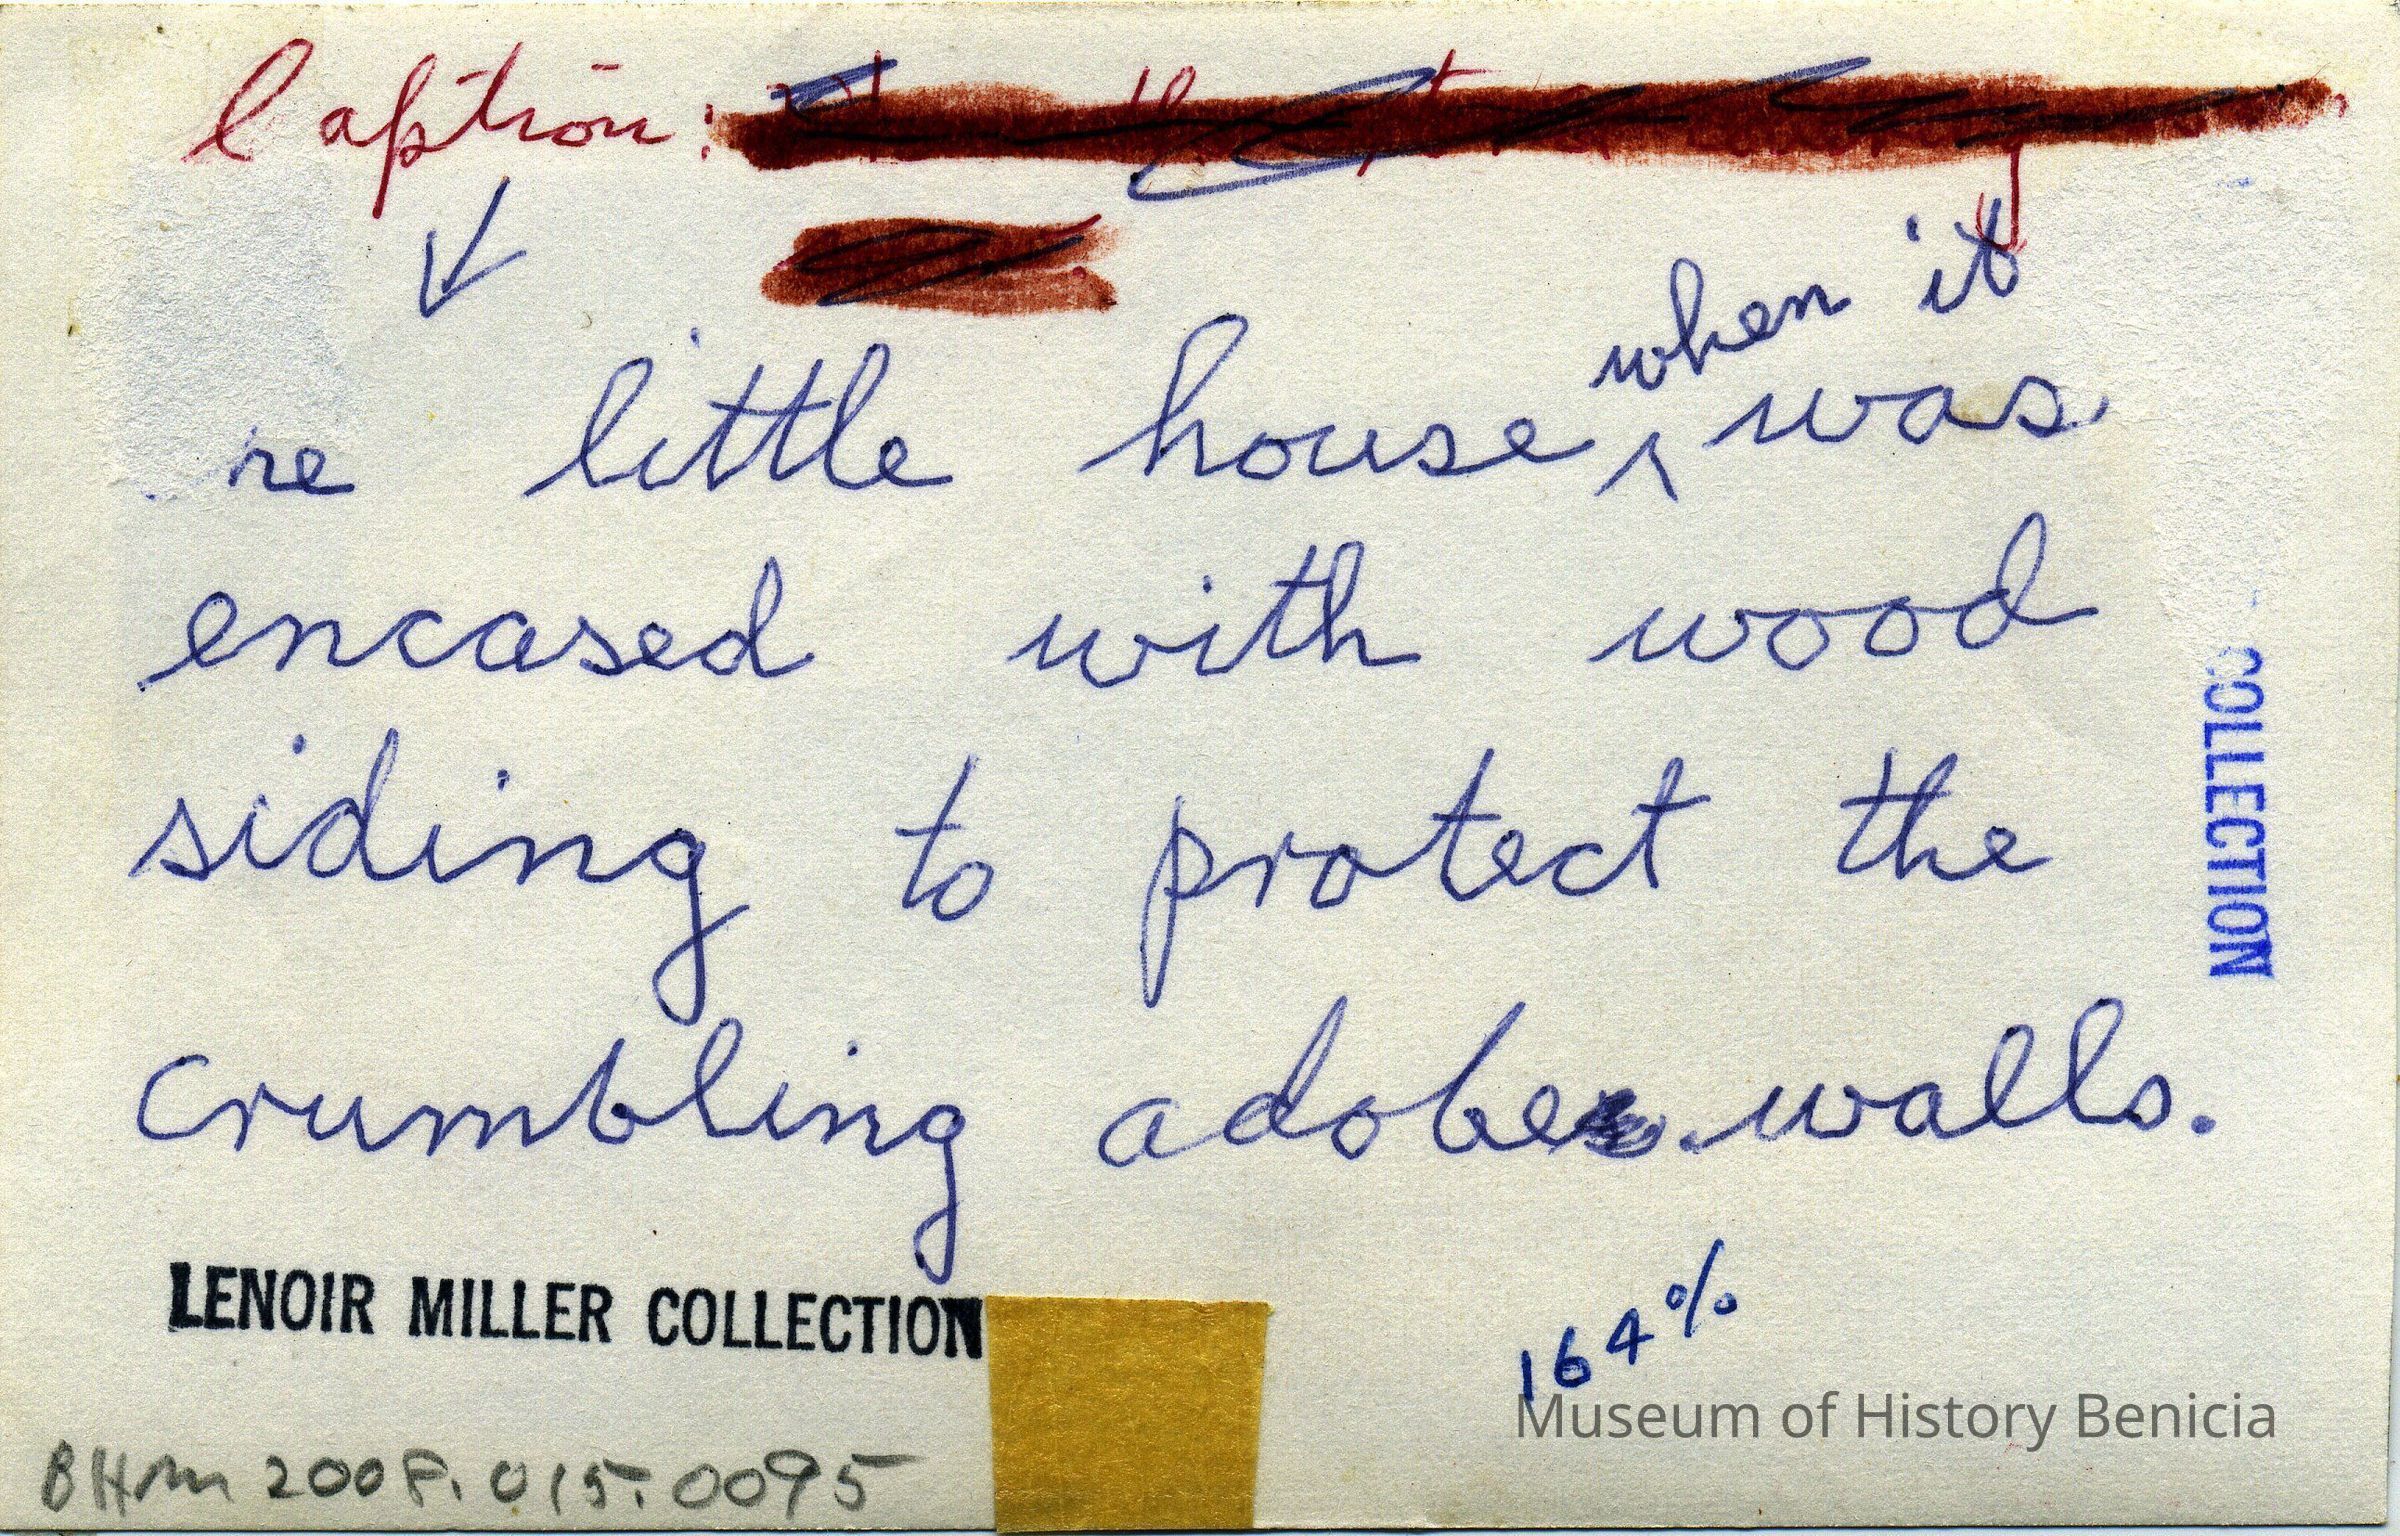 Caption:
when it
re little house ^ was
encased with wood
siding to protect the
crumbling adobe walls.
COLLECTION
LENOIR MILLER COLLECTION
164%
Museum of History Benicia
BHM 2008.015.0095